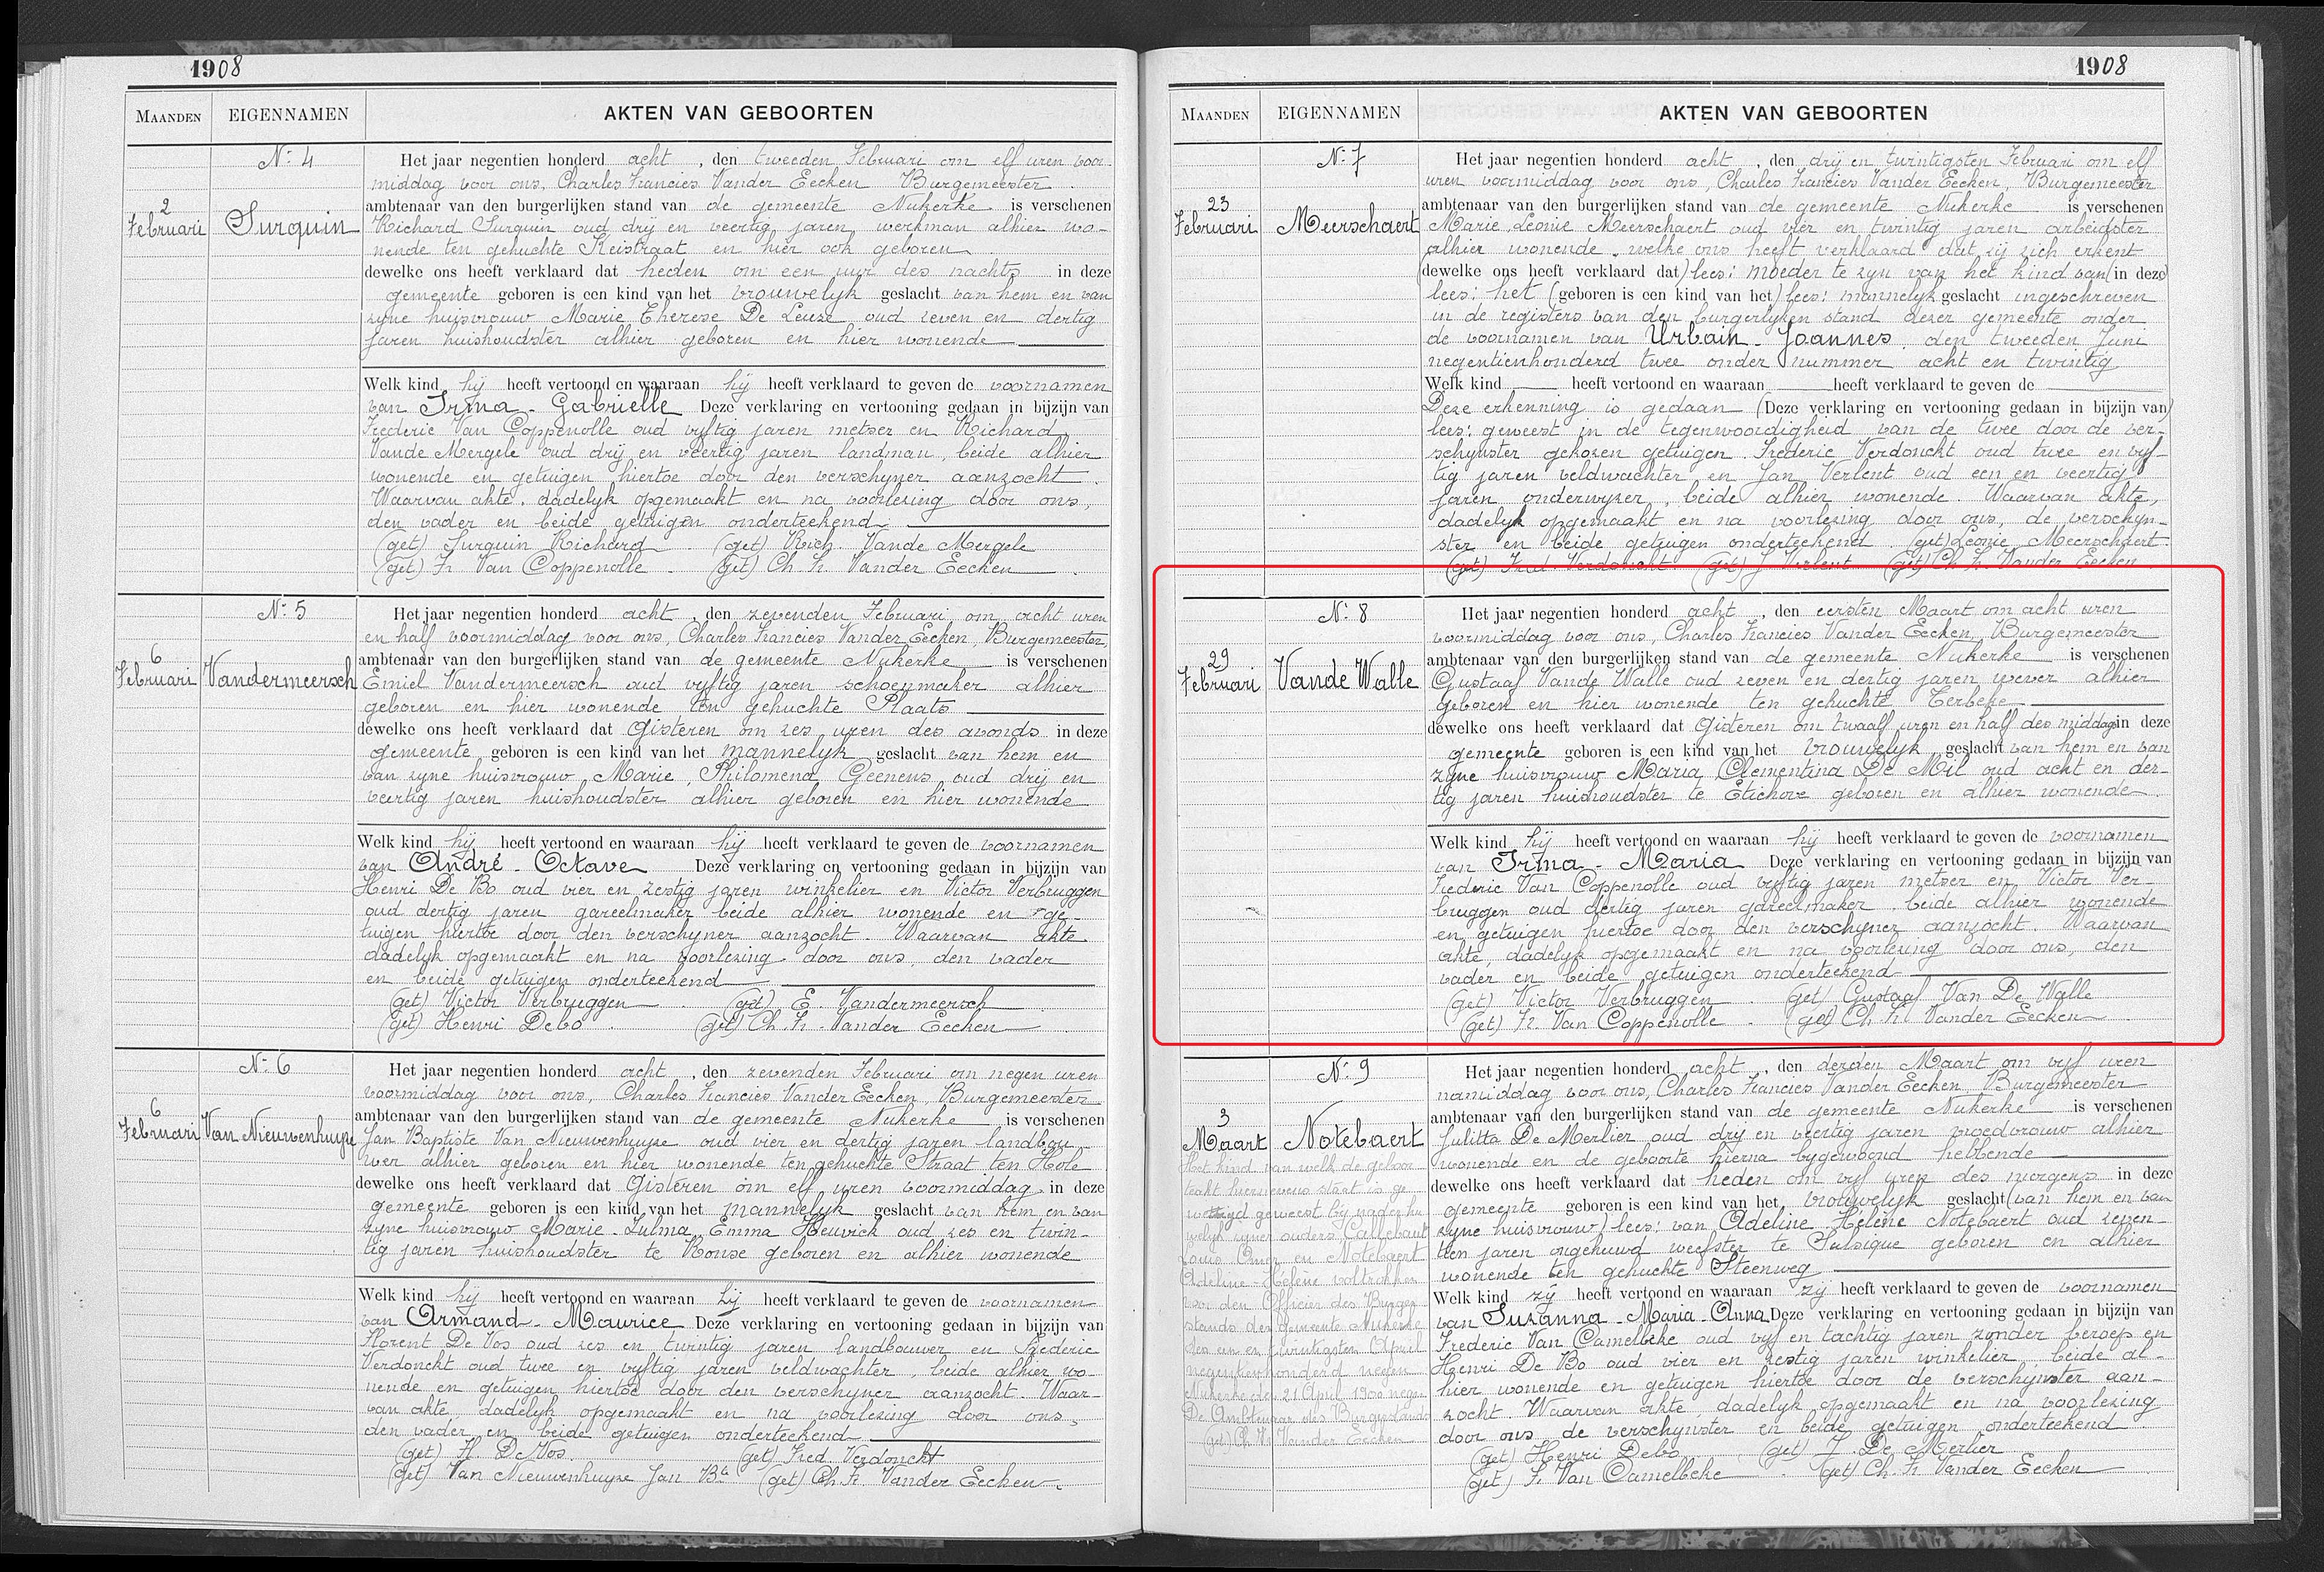 1908
MAANDEN EIGENNAMEN AKTEN VAN GEBOORTEN
N: 4
2
Februari
Surquin
Het jaar negentien honderd acht, den tweeden Februari om elf uren voor-
middag voor ons, Charles Francies Vander Eecken Burgemeester
ambtenaar van den burgerlijken stand van de gemeente Nukerke is verschenen
Richard Surquin oud drij en veertig jaren werkman alhier wo-
nende ten gehuchte Keistraat en hier ook geboren
dewelke ons heeft verklaard dat heden om een uur des nachts in deze
gemeente geboren is een kind van het vrouwelyk geslacht van hem en van
zyne huisvrouw Marie Therese De Leuze oud zeven en dertig
jaren huishoudster alhier geboren en hier wonende
Welk kind hij heeft vertoond en waaraan hij heeft verklaard te geven de voornamen
van Irma - Gabrielle Deze verklaring en vertooning gedaan in bijzijn van
Frederic Van Coppenolle oud vyftig jaren metser en Richard
Vande Mergele oud drij en veertig jaren landman, beide alhier
wonende en getuigen hiertoe door den verschyner aanzocht.
Waarvan akte, dadelyk opgemaakt en na voorlezing door ons,
den vader en beide getuigen onderteekend
(get) Surquin Richard (get) Rich. Vande Mergele
(get) Fr Van Coppenolle (get) Ch. Fr. Vander Eecken
N: 5
6
Februari
Vandermeersch
Het jaar negentien honderd acht, den zevenden Februari om acht uren
en half voormiddag voor ons, Charles Francies Vander Eecken, Burgemeester,
ambtenaar van den burgerlijken stand van de gemeente Nukerke is verschenen
Emiel Vandermeersch oud vyftig jaren schoenmaker alhier
geboren en hier wonende ten gehuchte Plaats
dewelke ons heeft verklaard dat gisteren om zes uren des avonds in deze
gemeente geboren is een kind van het mannelyk geslacht van hem en
van zyne huisvrouw Marie, Philomena Geenens oud drij en
veertig jaren huishoudster alhier geboren en hier wonende
Welk kind hij heeft vertoond en waaraan hij heeft verklaard te geven de voornamen
van André - Octave Deze verklaring en vertooning gedaan in bijzijn van
Henri De Bo oud vier en zestig jaren winkelier en Victor Verbruggen
oud dertig jaren gareelmaker beide alhier wonende en ge-
tuigen hiertoe door den verschyner aanzocht. Waarvan akte
dadelyk opgemaakt en na voorlezing door ons, den vader
en beide getuigen onderteekend
(get) Victor Verbruggen (get) E. Vandermeersch
(get) Henri Debo (get) Ch. Fr. Vander Eecken
N: 6
6
Februari
Van Nieuwenhuyze
Het jaar negentien honderd acht, den zevenden Februari om negen uren
voormiddag voor ons, Charles Francies Vander Eecken, Burgemeester
ambtenaar van den burgerlijken stand van de gemeente Nukerke is verschenen
Jan Baptiste Van Nieuwenhuyze oud vier en dertig jaren landbou-
wer alhier geboren en hier wonende ten gehuchte Straat ten Hole
dewelke ons heeft verklaard dat gisteren om elf uren voormiddag in deze
gemeente geboren is een kind van het mannelyk geslacht van hem en van
zyne huisvrouw Marie - Zulma, Emma Heuvick oud zes en twin-
tig jaren huishoudster te Ronse geboren en alhier wonende
Welk kind hij heeft vertoond en waaraan hij heeft verklaard te geven de voornamen
van Armand - Maurice Deze verklaring en vertooning gedaan in bijzijn van
Florent De Vos oud zes en twintig jaren landbouwer en Frederic
Verdonckt oud twee en vyftig jaren veldwachter, beide alhier wo-
nende en getuigen hiertoe door den verschyner aanzocht. Waar-
van akte, dadelyk opgemaakt en na voorlezing door ons,
den vader en beide getuigen onderteekend
(get) Fl. De Vos (get) Fred. Verdonckt
(get) Van Nieuwenhuyze Jan Bte (get) Ch. Fr. Vander Eecken
1908
MAANDEN EIGENNAMEN AKTEN VAN GEBOORTEN
N: 7
23
Februari
Meerschaert
Het jaar negentien honderd acht, den drij en twintigsten Februari om elf
uren voormiddag voor ons, Charles Francies Vander Eecken, Burgemeester
ambtenaar van den burgerlijken stand van de gemeente Nukerke is verschenen
Marie, Leonie Meerschaert oud vier en twintig jaren arbeidster
alhier wonende, welke ons heeft verklaard dat zij zich erkent
(dewelke ons heeft verklaard dat) lees: moeder te zyn van het kind van (in deze)
lees: het (geboren is een kind van het) lees: mannelyk geslacht ingeschreven
in de registers van den burgerlyken stand dezer gemeente onder
de voornamen van Urbain - Joannes, den tweeden Juni
negentienhonderd twee onder nummer acht en twintig
Welk kind heeft vertoond en waaraan heeft verklaard te geven de
Deze erkenning is gedaan (Deze verklaring en vertooning gedaan in bijzijn van)
lees: geweest in de tegenwoordigheid van de twee door de ver-
schynster gekozen getuigen. Frederic Verdonckt oud twee en vyf-
tig jaren veldwachter en Jan Verlent oud een en veertig
jaren onderwyzer, beide alhier wonende. Waarvan akte,
dadelyk opgemaakt en na voorlezing door ons, de verschyn-
ster en beide getuigen onderteekend (get) Leonie Meerschaert
(get) Fred. Verdonckt. (get) J Verlent (get) Ch. Fr. Vander Eecken
N: 8
29
Februari
Vande Walle
Het jaar negentien honderd acht, den eersten Maart om acht uren
voormiddag voor ons, Charles Francies Vander Eecken, Burgemeester
ambtenaar van den burgerlijken stand van de gemeente Nukerke is verschenen
Gustaaf Vande Walle oud zeven en dertig jaren wever alhier
geboren en hier wonende ten gehuchte Terbeke
dewelke ons heeft verklaard dat gisteren om twaalf uren en half des middags in deze
gemeente geboren is een kind van het vrouwelyk geslacht van hem en van
zyne huisvrouw Maria Clementina De Mil oud acht en der-
tig jaren huishoudster te Etichove geboren en alhier wonende
Welk kind hij heeft vertoond en waaraan hij heeft verklaard te geven de voornamen
van Irma - Maria Deze verklaring en vertooning gedaan in bijzijn van
Frederic Van Coppenolle oud vyftig jaren metser en Victor Ver-
bruggen oud dertig jaren gareelmaker beide alhier wonende
en getuigen hiertoe door den verschyner aanzocht. Waarvan
akte, dadelyk opgemaakt en na voorlezing door ons, den
vader en beide getuigen onderteekend
(get) Victor Verbruggen (get) Gustaaf Van De Walle
(get) Fr. Van Coppenolle (get) Ch Fr Vander Eecken
N: 9
3
Maart
Notebaert
Het kind van welk de geboor-
teakt hiernevens staat is ge-
wettigd geweest by nader hu-
welyk zyner ouders Callebaut
Louis Omer en Notebaert
Adeline-Hélène voltrokken
voor den Officier des Burger-
stands der gemeente Nukerke
den een en twintigsten April
negentienhonderd negen
Nukerke den 21 April 1900 negen
De Ambtenaar des Burgerstands
(get) Ch. Fr. Vander Eecken
Het jaar negentien honderd acht, den derden Maart om vyf uren
namiddag voor ons, Charles Francies Vander Eecken, Burgemeester
ambtenaar van den burgerlijken stand van de gemeente Nukerke is verschenen
Julitta De Merlier oud drij en veertig jaren vroedvrouw alhier
wonende en de geboorte hierna bygewoond hebbende
dewelke ons heeft verklaard dat heden om vyf uren des morgens in deze
gemeente geboren is een kind van het vrouwelyk geslacht (van hem en van
zyne huisvrouw) lees: van Adeline Hélène Notebaert oud zeven-
tien jaren ongehuwd weefster te Sulsique geboren en alhier
wonende ten gehuchte Steenweg
Welk kind zij heeft vertoond en waaraan zij heeft verklaard te geven de voornamen
van Suzanna - Maria - Anna Deze verklaring en vertooning gedaan in bijzijn van
Frederic Van Camelbeke oud vyf en tachtig jaren zonder beroep en
Henri De Bo oud vier en zestig jaren winkelier, beide al-
hier wonende en getuigen hiertoe door de verschynster aan-
zocht. Waarvan akte, dadelyk opgemaakt en na voorlezing
door ons de verschynster en beide getuigen onderteekend
(get) Henri Debo (get) J. De Merlier
(get) Fr Van Camelbeke (get) Ch. Fr Vander Eecken